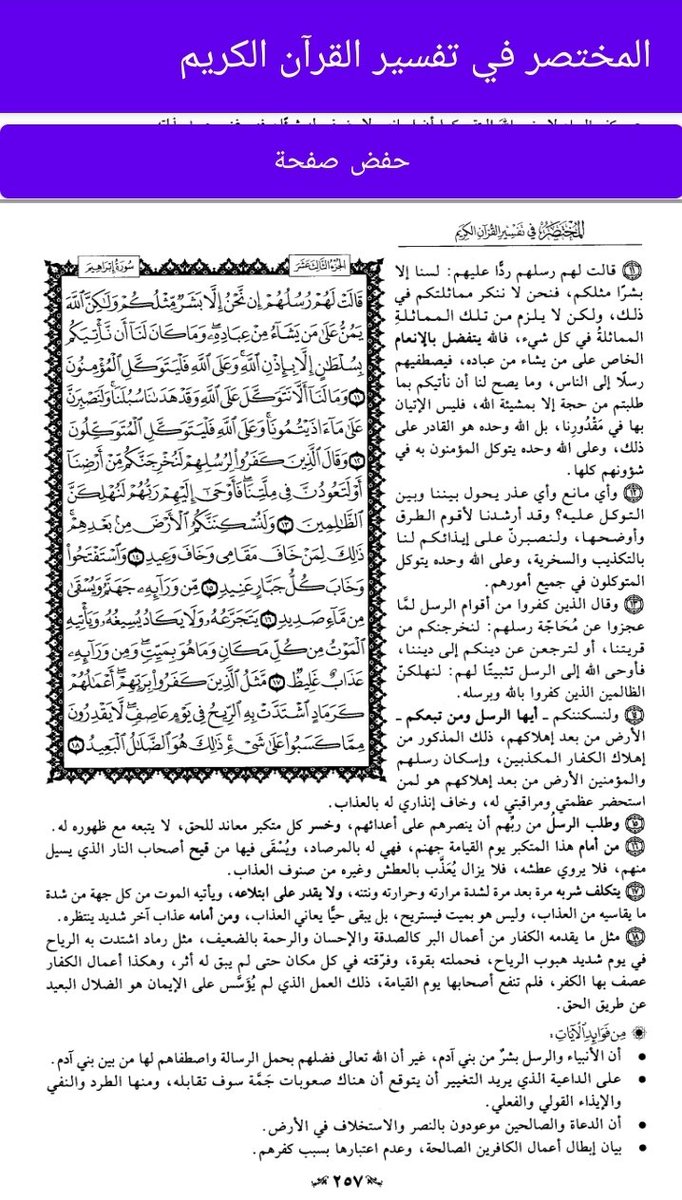 المختصر في تفسير القرآن الكريم
حفض صفحة
المختصر في تفسير القرآن الكريم
سورة إبراهيم
الجزء الثالث عشر
قَالَتْ لَهُمْ رُسُلُهُمْ إِن نَّحْنُ إِلَّا بَشَرٌ مِّثْلُكُمْ وَلَٰكِنَّ ٱللَّهَ
يَمُنُّ عَلَىٰ مَن يَشَآءُ مِنْ عِبَادِهِۦ وَمَا كَانَ لَنَآ أَن نَّأْتِيَكُم
بِسُلْطَٰنٍ إِلَّا بِإِذْنِ ٱللَّهِ وَعَلَى ٱللَّهِ فَلْيَتَوَكَّلِ ٱلْمُؤْمِنُونَ
١١ وَمَا لَنَآ أَلَّا نَتَوَكَّلَ عَلَى ٱللَّهِ وَقَدْ هَدَىٰنَا سُبُلَنَا وَلَنَصْبِرَنَّ
عَلَىٰ مَآ ءَاذَيْتُمُونَا وَعَلَى ٱللَّهِ فَلْيَتَوَكَّلِ ٱلْمُتَوَكِّلُونَ
١٢ وَقَالَ ٱلَّذِينَ كَفَرُوا۟ لِرُسُلِهِمْ لَنُخْرِجَنَّكُم مِّنْ أَرْضِنَآ
أَوْ لَتَعُودُنَّ فِى مِلَّتِنَا فَأَوْحَىٰٓ إِلَيْهِمْ رَبُّهُمْ لَنُهْلِكَنَّ
ٱلظَّٰلِمِينَ ١٣ وَلَنُسْكِنَنَّكُمُ ٱلْأَرْضَ مِنۢ بَعْدِهِمْ
ذَٰلِكَ لِمَنْ خَافَ مَقَامِى وَخَافَ وَعِيدِ ١٤ وَٱسْتَفْتَحُوا۟
وَخَابَ كُلُّ جَبَّارٍ عَنِيدٍ ١٥ مِّن وَرَآئِهِۦ جَهَنَّمُ وَيُسْقَىٰ
مِن مَّآءٍ صَدِيدٍ ١٦ يَتَجَرَّعُهُۥ وَلَا يَكَادُ يُسِيغُهُۥ وَيَأْتِيهِ
ٱلْمَوْتُ مِن كُلِّ مَكَانٍ وَمَا هُوَ بِمَيِّتٍ وَمِن وَرَآئِهِۦ
عَذَابٌ غَلِيظٌ ١٧ مَّثَلُ ٱلَّذِينَ كَفَرُوا۟ بِرَبِّهِمْ أَعْمَٰلُهُمْ
كَرَمَادٍ ٱشْتَدَّتْ بِهِ ٱلرِّيحُ فِى يَوْمٍ عَاصِفٍ لَّا يَقْدِرُونَ
مِمَّا كَسَبُوا۟ عَلَىٰ شَىْءٍ ذَٰلِكَ هُوَ ٱلضَّلَٰلُ ٱلْبَعِيدُ ١٨
١١ قالت لهم رسلهم ردًّا عليهم: لسنا إلا
بشرًا مثلكم، فنحن لا ننكر مماثلتكم في
ذلك، ولكن لا يلزم من تلك المماثلةِ
المماثلةُ في كل شيء، فالله يتفضل بالإنعام
الخاص على من يشاء من عباده، فيصطفيهم
رسلًا إلى الناس، وما يصح لنا أن نأتيكم بما
طلبتم من حجة إلا بمشيئة الله، فليس الإتيان
بها في مَقْدُورِنا، بل الله وحده هو القادر على
ذلك، وعلى الله وحده يتوكل المؤمنون به في
شؤونهم كلها.
١٢ وأي مانع وأي عذر يحول بيننا وبين
التوكل عليه؟ وقد أرشدنا لأقوم الطرق
وأوضحها، ولنصبرنّ على إيذائكم لنا
بالتكذيب والسخرية، وعلى الله وحده يتوكل
المتوكلون في جميع أمورهم.
١٣ وقال الذين كفروا من أقوام الرسل لمَّا
عجزوا عن مُحَاجّة رسلهم: لنخرجنكم من
قريتنا، أو لترجعن عن دينكم إلى ديننا،
فأوحى الله إلى الرسل تثبيتًا لهم: لنهلكنّ
الظالمين الذين كفروا بالله وبرسله.
١٤ ولنسكننكم - أيها الرسل ومن تبعكم -
الأرض من بعد إهلاكهم، ذلك المذكور من
إهلاك الكفار المكذبين، وإسكان رسلهم
والمؤمنين الأرض من بعد إهلاكهم هو لمن
استحضر عظمتي ومراقبتي له، وخاف إنذاري له بالعذاب.
١٥ وطلب الرسلُ من ربِّهم أن ينصرهم على أعدائهم، وخسر كل متكبر معاند للحق، لا يتبعه مع ظهوره له.
١٦ من أمام هذا المتكبر يوم القيامة جهنم، فهي له بالمرصاد، ويُسْقَى فيها من قيح أصحاب النار الذي يسيل
منهم، فلا يروي عطشه، فلا يزال يُعَذَّب بالعطش وغيره من صنوف العذاب.
١٧ يتكلف شربه مرة بعد مرة لشدة مرارته وحرارته ونتنه، ولا يقدر على ابتلاعه، ويأتيه الموت من كل جهة من شدة
ما يقاسيه من العذاب، وليس هو بميت فيستريح، بل يبقى حيًّا يعاني العذاب، ومن أمامه عذاب آخر شديد ينتظره.
١٨ مثل ما يقدمه الكفار من أعمال البر كالصدقة والإحسان والرحمة بالضعيف، مثل رماد اشتدت به الرياح
في يوم شديد هبوب الرياح، فحملته بقوة، وفرّقته في كل مكان حتى لم يبق له أثر، وهكذا أعمال الكفار
عصف بها الكفر، فلم تنفع أصحابها يوم القيامة، ذلك العمل الذي لم يُؤَسَّس على الإيمان هو الضلال البعيد
عن طريق الحق.
من فوائد الآيات:
• أن الأنبياء والرسل بشرٌ من بني آدم، غير أن الله تعالى فضلهم بحمل الرسالة واصطفاهم لها من بين بني آدم.
• على الداعية الذي يريد التغيير أن يتوقع أن هناك صعوبات جَمَّة سوف تقابله، ومنها الطرد والنفي
والإيذاء القولي والفعلي.
• أن الدعاة والصالحين موعودون بالنصر والاستخلاف في الأرض.
• بيان إبطال أعمال الكافرين الصالحة، وعدم اعتبارها بسبب كفرهم.
٢٥٧